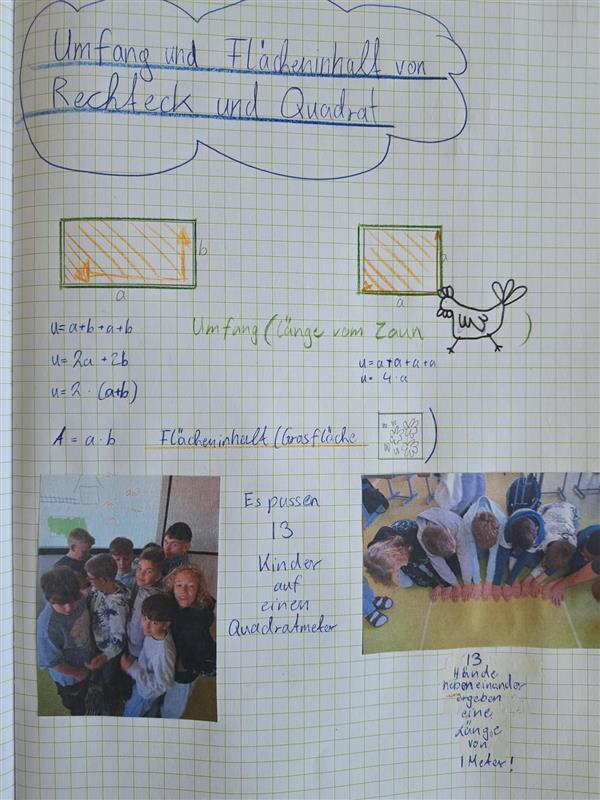 Umfang und Flächeninhalt von
Rechteck und Quadrat
b
a
a
a
u = a+b+a+b
u = 2a + 2b
u = 2 · (a+b)
Umfang (Länge vom Zaun )
u = a+a+a+a
u = 4 · a
A = a · b
Flächeninhalt (Grasfläche )
Es passen
13
Kinder
auf
einen
Quadratmeter
13
Hände
nebeneinander
ergeben
eine
Länge
von
1 Meter!